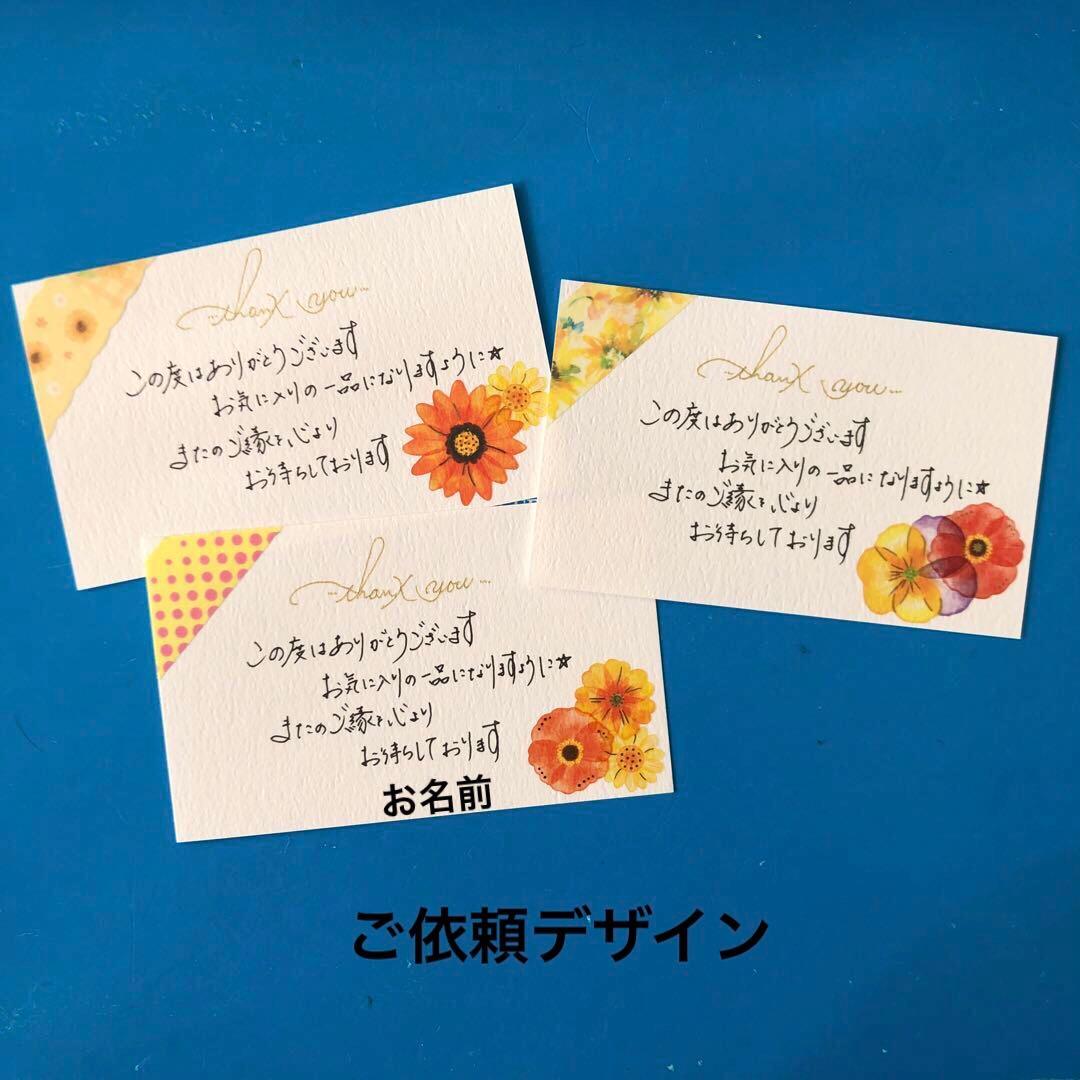 ...thanx you...
この度はありがとうございます
お気に入りの一品になりますように☆
またのご縁を心より
お待ちしております
...thanx you...
この度はありがとうございます
お気に入りの一品になりますように☆
またのご縁を心より
お待ちしております
...thanx you...
この度はありがとうございます
お気に入りの一品になりますように☆
またのご縁を心より
お待ちしております
お名前
ご依頼デザイン